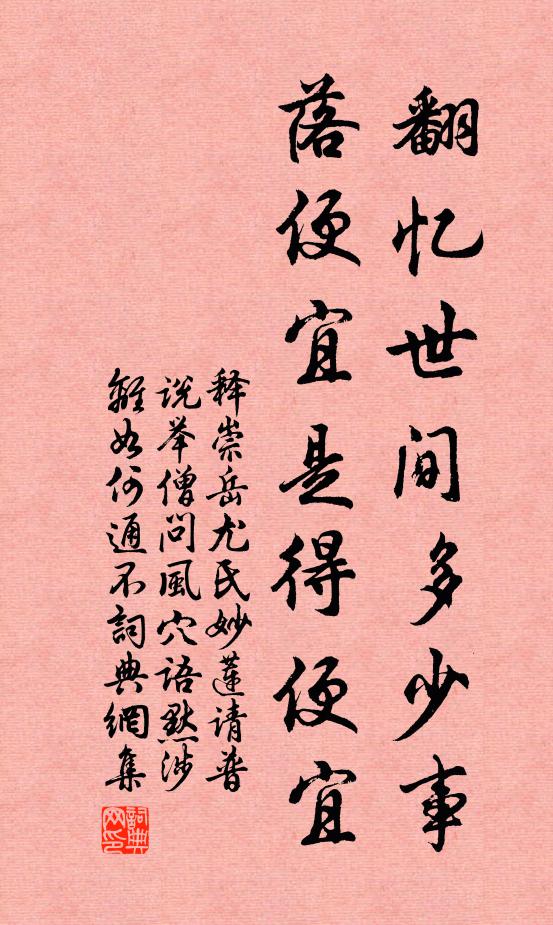 翻忆世间多少事
落便宜是得便宜
释崇岳尤氏妙莲请普
说举僧问风穴语默涉
离如何通不词典网集
词典
网印